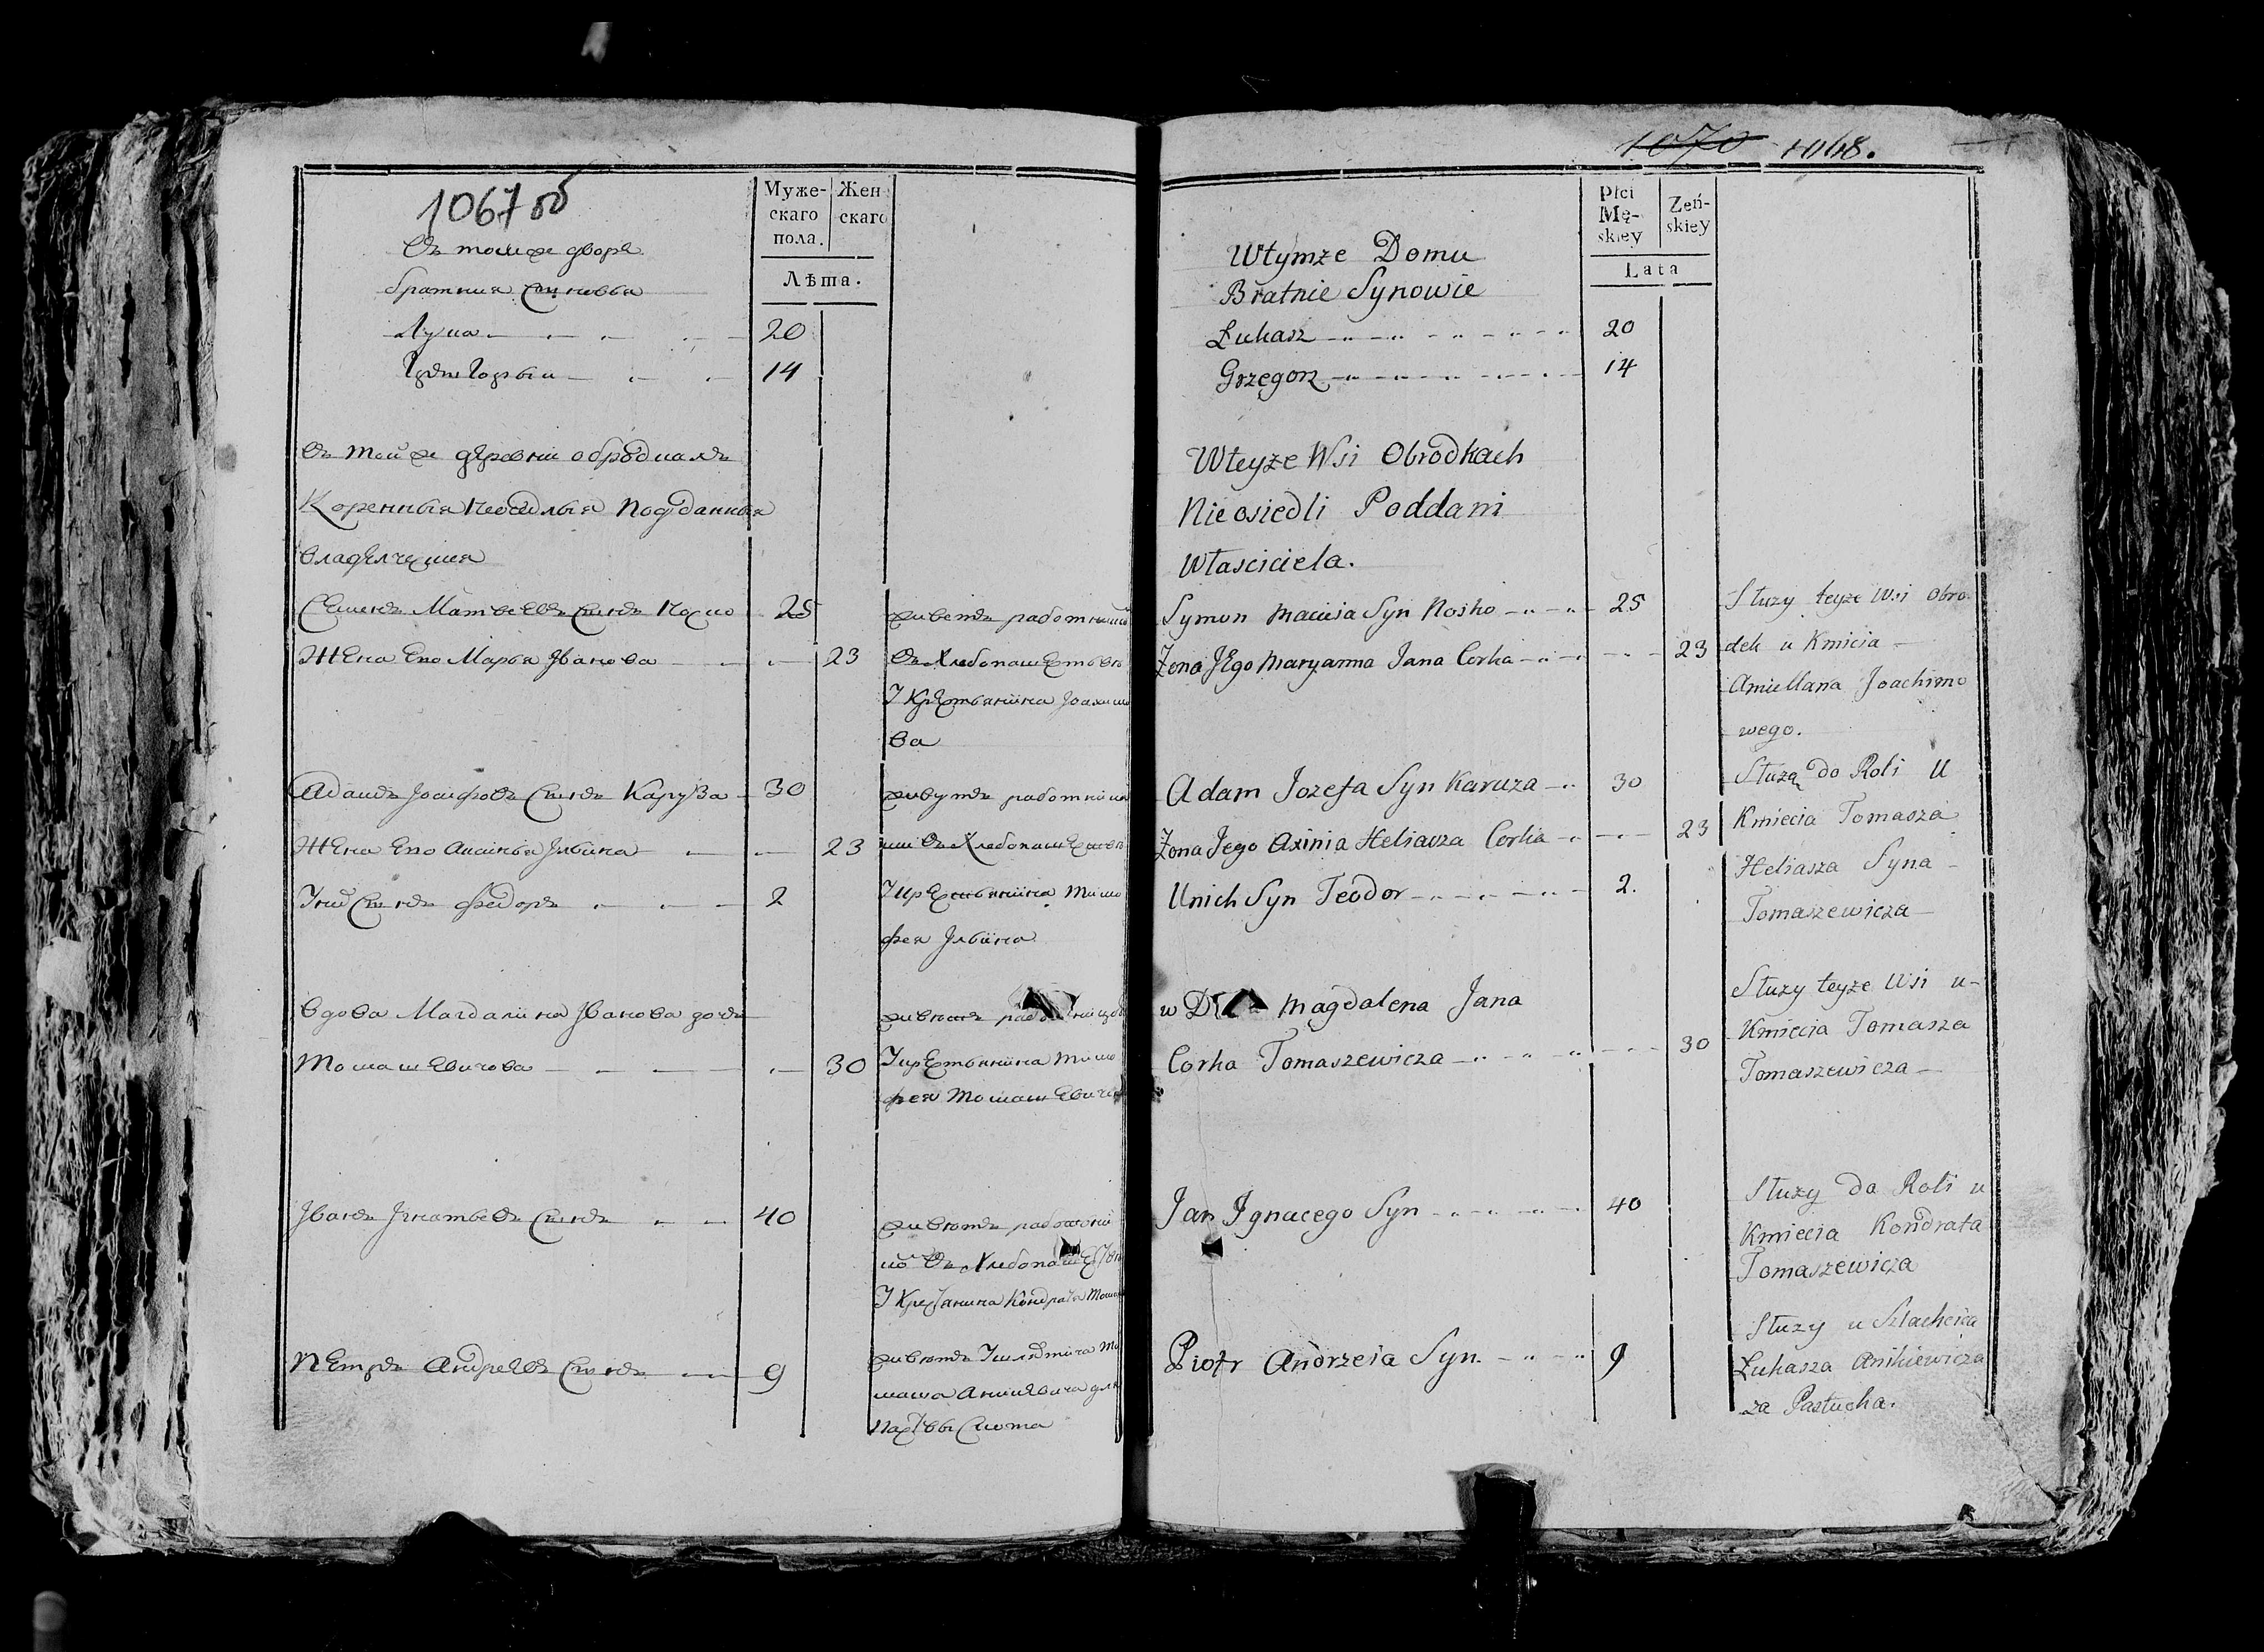 1067 об
Муже-
скаго
пола.
Жен
скаго
Лѣта.
Въ томже дворѣ
братния сыновья
Лука 20
Григорьи 14
Въ тойже деревни обродкахъ
Коренныя неоседлыя подданныя
владелческия
Семенъ Матвеевъ сынъ Носко 25 живетъ работникомъ
Жена Его Марья Иванова 23 въ хлебопашестве
У крестьянина Иоахимо
ва
Адамъ Иосифовъ сынъ Каруза 30 живутъ работника
Жена Его Аксинья Ильина 23 ми въ хлебопашестве
У них сынъ Федоръ 2 У крестьянина Тимо
фея Ильина
вдова Магдалина Иванова дочь живетъ
Томашевичова 30 У крестьянина Тимо
фея Томашевича
Иванъ Игнатьевъ сынъ 40 живетъ работни
ко въ хлебопашестве
У крестьянина Кондратья
Петръ Андреевъ сынъ 9 живетъ У шляхтича
для
паствы скота
1070 1068.
Płci
Mę-
skiey
Zeń-
skiey
Lata
Wtymże Domu
Bratnie Synowie
Łukasz 20
Grzegorz 14
Wteyże Wsi Obrodkach
Nieosiedli Poddani
Własciciela.
Symon Macieia Syn Nosko 25 Służy teyże Wsi Obro
Żona Jego Maryanna Jana Corka 23 dek u Kmicia
Joachimo
wego.
Adam Jozefa Syn Karuza 30 Służą do Roli U
Żona Jego Axinia Heliasza Corka 23 Kmiecia Tomasza
Heliasza Syna
Unich Syn Teodor 2. Tomaszewicza
Magdalena Jana Służy teyże Wsi u
Corka Tomaszewicza 30 Kmiecia Tomasza
Tomaszewicza
Jan Ignacego Syn 40 Służy do Roli u
Kmiecia Kondrata
Tomaszewicza
Piotr Andrzeia Syn 9 Służy u Szlachcica
Łukasza Anikiewicza
za Pastucha.